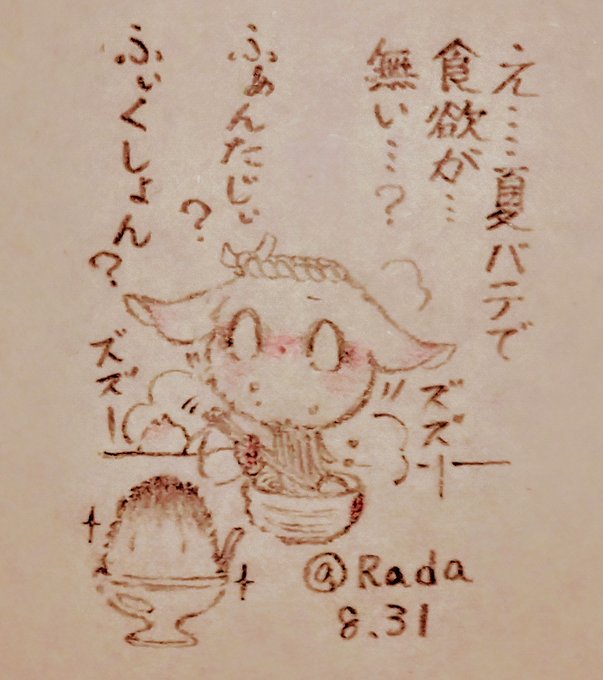 え……夏バテで
食欲が…
無い…？
ふぁんたじぃ
？
ふぃくしょん？
ズズー
ズズー
@Rada
8.31